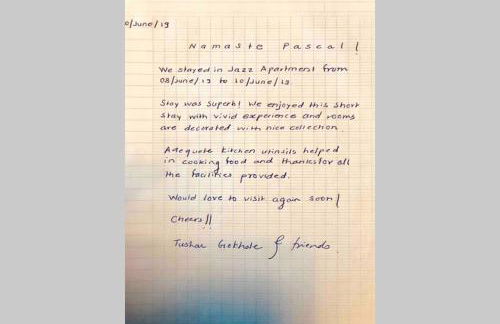 0/June/19
Namaste Pascal!
We stayed in Jazz Apartment from
08/June/19 to 10/June/19
Stay was superb! We enjoyed this short
stay with vivid experience and rooms
are decorated with nice collection
Adequete kitchen utinsils helped
in cooking food and thanks for all
the facilities provided.
Would love to visit again soon!
Cheers!!
Tushar Gokhale & friends.